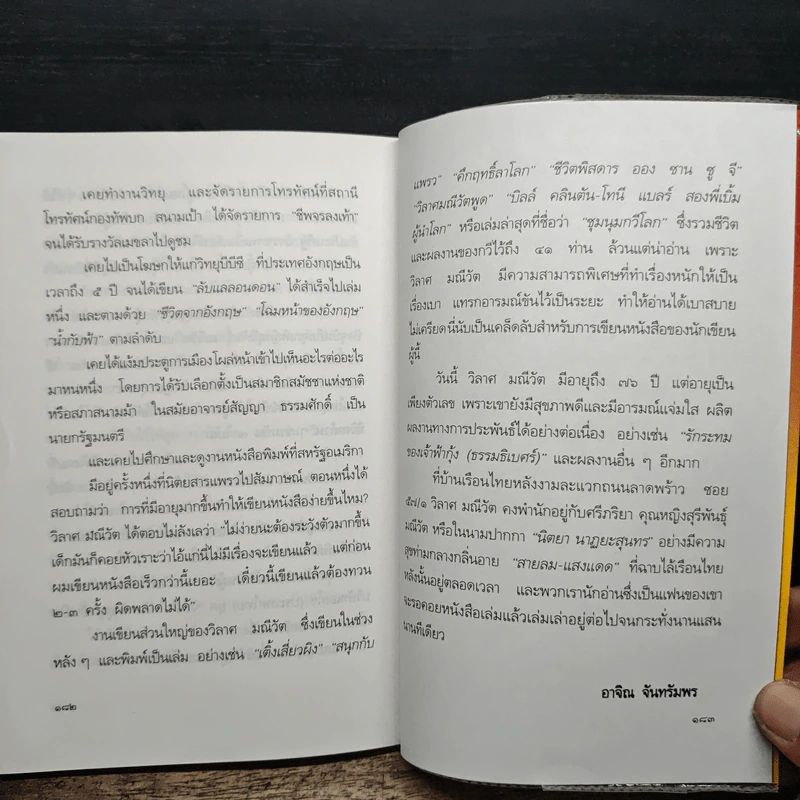 เคยทำงานวิทยุ และจัดรายการโทรทัศน์ที่สถานี
โทรทัศน์กองทัพบก สนามเป้า ได้จัดรายการ "ชีพจรลงเท้า"
จนได้รับรางวัลเมขลาไปดูชม
เคยไปเป็นโฆษกให้แก่วิทยุบีบีซี ที่ประเทศอังกฤษเป็น
เวลาถึง ๕ ปี จนได้เขียน "ลับแลลอนดอน" ได้สำเร็จไปเล่ม
หนึ่ง และตามด้วย "ชีวิตจากอังกฤษ" "โฉมหน้าของอังกฤษ"
"น้ำกับฟ้า" ตามลำดับ
เคยได้แง้มประตูการเมืองโผล่หน้าเข้าไปเห็นอะไรต่ออะไร
มาหนหนึ่ง โดยการได้รับเลือกตั้งเป็นสมาชิกสมัชชาแห่งชาติ
หรือสภาสนามม้า ในสมัยอาจารย์สัญญา ธรรมศักดิ์ เป็น
นายกรัฐมนตรี
และเคยไปศึกษาและดูงานหนังสือพิมพ์ที่สหรัฐอเมริกา
มีอยู่ครั้งหนึ่งที่นิตยสารแพรวไปสัมภาษณ์ ตอนหนึ่งได้
สอบถามว่า การที่มีอายุมากขึ้นทำให้เขียนหนังสือง่ายขึ้นไหม?
วิลาศ มณีวัต ได้ตอบไม่ลังเลว่า "ไม่ง่ายนะต้องระวังตัวมากขึ้น
เด็กมันก็คอยหัวเราะว่าไอ้แก่นี่ไม่มีเรื่องจะเขียนแล้ว แต่ก่อน
ผมเขียนหนังสือเร็วกว่านี้เยอะ เดี๋ยวนี้เขียนแล้วต้องทวน
๒-๓ ครั้ง ผิดพลาดไม่ได้"
งานเขียนส่วนใหญ่ของวิลาศ มณีวัต ซึ่งเขียนในช่วง
หลังๆ และพิมพ์เป็นเล่ม อย่างเช่น "เติ้งเสี่ยวผิง" "สนุกกับ
๑๘๒
แพรว" "คึกฤทธิ์ลาโลก" "ชีวิตพิสดาร ออง ซาน ซู จี"
"วิลาศมณีวัตพูด" "บิลล์ คลินตัน-โทนี แบลร์ สองพี่เบิ้ม
ผู้นำโลก" หรือเล่มล่าสุดที่ชื่อว่า "ชุมนุมกวีโลก" ซึ่งรวมชีวิต
และผลงานของกวีไว้ถึง ๔๑ ท่าน ล้วนแต่น่าอ่าน เพราะ
วิลาศ มณีวัต มีความสามารถพิเศษที่ทำเรื่องหนักให้เป็น
เรื่องเบา แทรกอารมณ์ขันไว้เป็นระยะ ทำให้อ่านได้เบาสบาย
ไม่เครียดนี่นับเป็นเคล็ดลับสำหรับการเขียนหนังสือของนักเขียน
ผู้นี้
วันนี้ วิลาศ มณีวัต มีอายุถึง ๗๖ ปี แต่อายุเป็น
เพียงตัวเลข เพราะเขายังมีสุขภาพดีและมีอารมณ์แจ่มใส ผลิต
ผลงานทางการประพันธ์ได้อย่างต่อเนื่อง อย่างเช่น "รักระทม
ของเจ้าฟ้ากุ้ง (ธรรมธิเบศร์)" และผลงานอื่น ๆ อีกมาก
ที่บ้านเรือนไทยหลังงามละแวกถนนลาดพร้าว ซอย
๕๗/๑ วิลาศ มณีวัต คงพำนักอยู่กับศรีภริยา คุณหญิงสุรีพันธุ์
มณีวัต หรือในนามปากกา "นิตยา นาฏยะสุนทร" อย่างมีความ
สุขท่ามกลางกลิ่นอาย "สายลม-แสงแดด" ที่ฉาบไล้เรือนไทย
หลังนั้นอยู่ตลอดเวลา และพวกเรานักอ่านซึ่งเป็นแฟนของเขา
จะรอคอยหนังสือเล่มแล้วเล่มเล่าอยู่ต่อไปจนกระทั่งนานแสน
นานทีเดียว
อาจิณ จันทรัมพร
๑๘๓